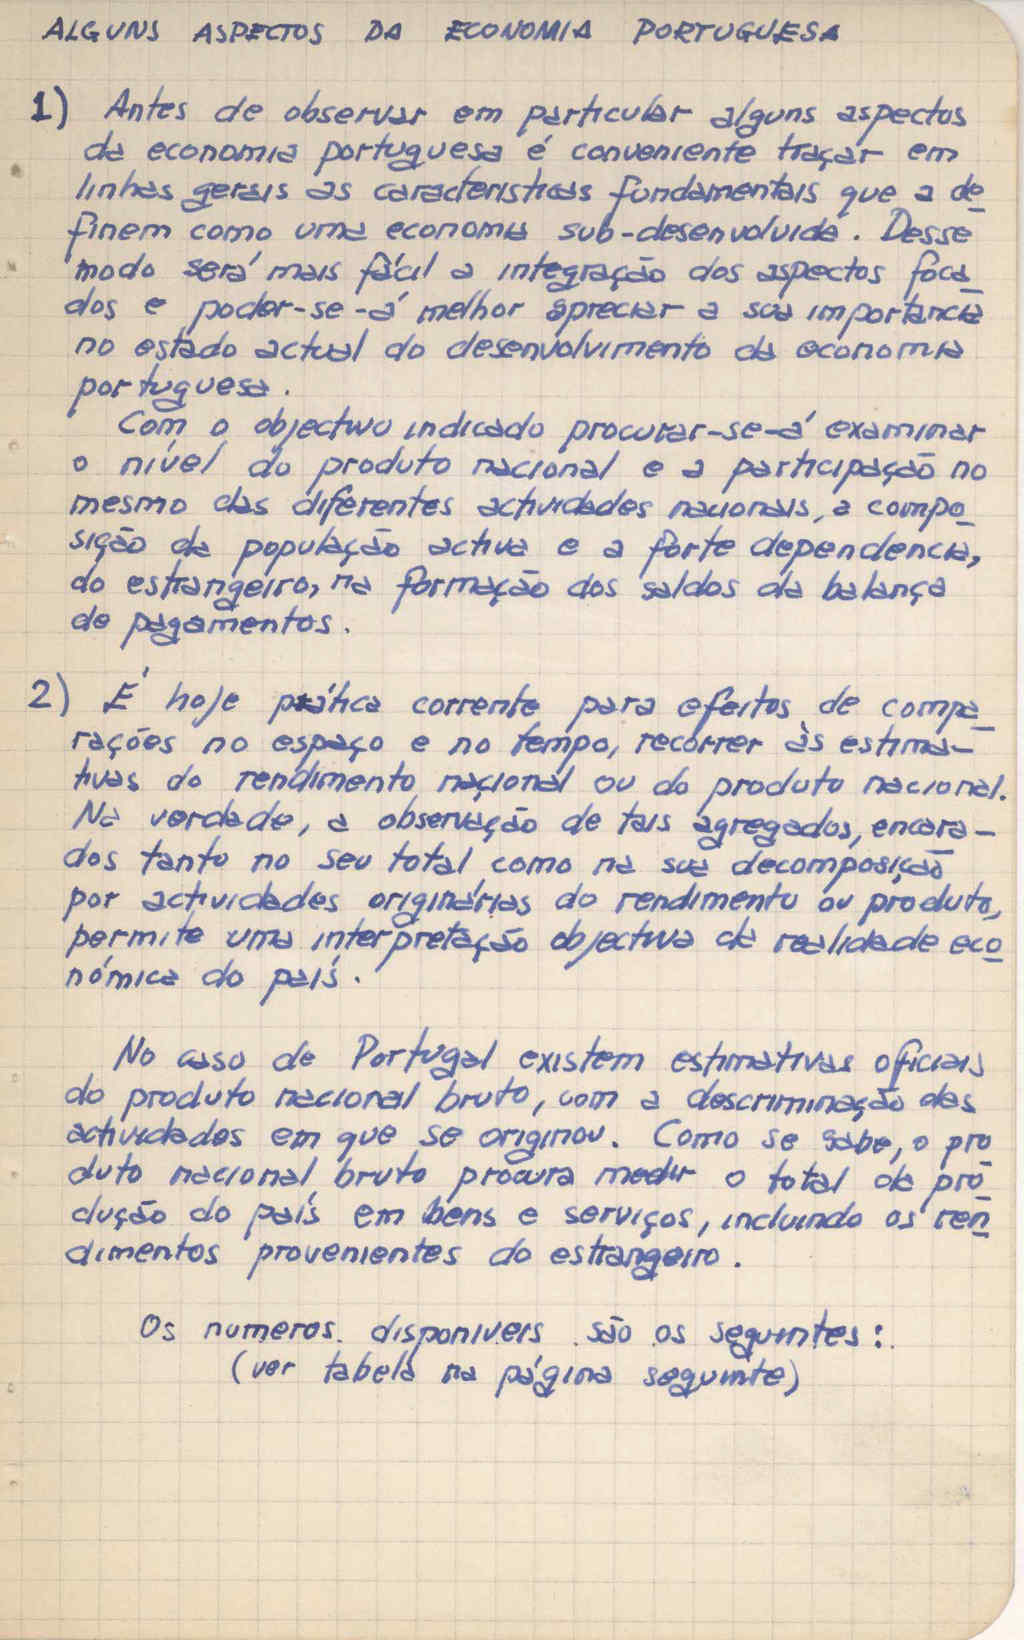 ALGUNS ASPECTOS DA ECONOMIA PORTUGUESA
1) Antes de observar em particular alguns aspectos
da economia portuguesa é conveniente traçar em
linhas gerais as caracteristicas fundamentais que a de
finem como uma economia sub-desenvolvida. Desse
modo será mais fácil a integração dos aspectos foca
dos e poder-se-á melhor apreciar a sua importancia
no estado actual do desenvolvimento da economia
portuguesa.
Com o objectivo indicado procurar-se-á examinar
o nível do produto nacional e a participação no
mesmo das diferentes actividades nacionais, a compo
sição da população activa e a forte dependencia,
do estrangeiro, na formação dos saldos da balança
de pagamentos.
2) É hoje prática corrente para efeitos de compa
rações no espaço e no tempo, recorrer às estima-
tivas do rendimento nacional ou do produto nacional.
Na verdade, a observação de tais agregados, encara-
dos tanto no seu total como na sua decomposição
por actividades originárias do rendimento ou produto,
permite uma interpretação objectiva da realidade eco
nómica do país.
No caso de Portugal existem estimativas oficiais
do produto nacional bruto, com a descriminação das
actividades em que se originou. Como se sabe, o pro
duto nacional bruto procura medir o total da pro
dução do país em bens e serviços, incluindo os ren
dimentos provenientes do estrangeiro.
Os numeros disponiveis são os seguintes:
(ver tabela na página seguinte)